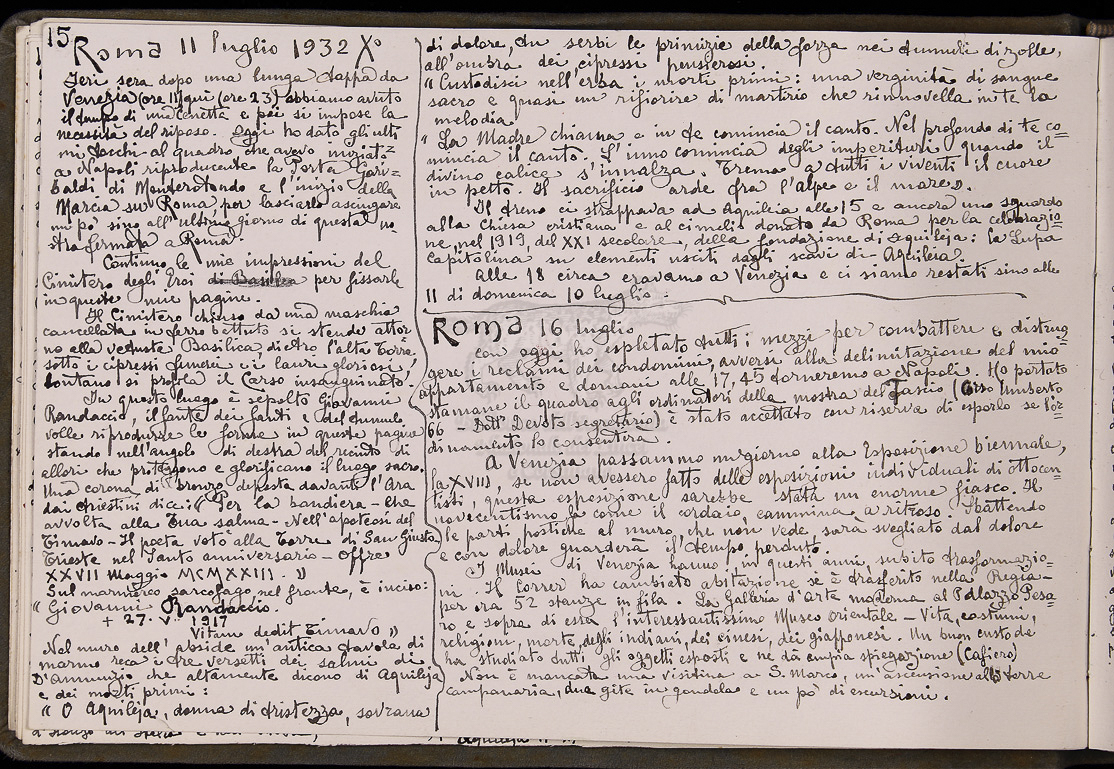 15
Roma 11 luglio 1932 Xº
Ieri sera dopo una lunga tappa da
Venezia (ore 11) qui (ore 23) abbiamo avuto
il tempo di una cenetta e poi si impose la
necessità del riposo. Oggi ho dato gli ulti=
mi tocchi al quadro che avevo iniziato
a Napoli riproducente la Porta Gari=
baldi di Monterotondo e l'inizio della
Marcia su Roma, per lasciarlo asciugare
un pò sino all'ultimo giorno di questa no
stra fermata a Roma.
Continuo le mie impressioni del
Cimitero degli Eroi di Basilea per fissarle
in queste mie pagine.
Il Cimitero chiuso da una maschia
cancellata in ferro battuto si stende attor
no alla vetusta Basilica, dietro l'alta torre,
sotto i cipressi funerei e i lauri gloriosi,
lontano si profila il Carso insanguinato.
In questo luogo è sepolto Giovanni
Randaccio, il fante dei fanti e del tumulo
volle riprodurre le forme in queste pagine
stando nell'angolo di destra del recinto di
allori che proteggono e glorificano il luogo sacro.
Una corona di bronzo deposta davanti l'Ara
dai triestini dice: "Per la bandiera - che
avvolta alla tua salma - Nell'apoteosi del
Timavo - Il poeta votò alla Torre di San Giusto
Trieste nel Santo anniversario - offre
XXVII Maggio MCMXXIII."
Sul marmoreo sarcofago nel fronte, è inciso:
"Giovanni Randaccio.
+ 27. V. 1917
Vitam dedit Timavo"
Nel muro dell'abside un'antica tavola di
marmo reca i tre versetti dei salmi di
D'Annunzio che altamente dicono di Aquileja
e dei morti primi:
"O Aquileja, donna di tristezza, sovrana
di dolore, tu serbi le primizie della forza nei tumuli di zolle,
all'ombra dei cipressi pensierosi.
"Custodisci nell'erba i morti primi: una verginità di sangue
sacro e quasi un rifiorire di martirio che rinnovella in te la
melodia.
"La Madre chiama e in te comincia il canto. Nel profondo di te co=
mincia il canto. L'inno comincia degli imperituri quando il
divino calice s'innalza. Trema a tutti i viventi il cuore
in petto. Il sacrificio arde fra l'alpe e il mare".
Il treno ci strappava ad Aquileia alle 15 e ancora uno sguardo
alla Chiesa cristiana e al cimelio donato da Roma per la celebrazio
ne, nel 1919, del XXI secolare, della fondazione di Aquileia: la Lupa
Capitolina su elementi usciti dagli scavi di Aquileia.
Alle 18 circa eravamo a Venezia e ci siamo restati sino alle
11 di domenica 10 luglio.
Roma 16 luglio
Con oggi ho espletato tutti i mezzi per combattere e distrug
gere i reclami dei condomini, avversi alla delimitazione del mio
appartamento e domani alle 17,45 torneremo a Napoli. Ho portato
stamane il quadro agli ordinatori della mostra del Fascio (Corso Umberto
66 - Dott Devoto segretario) è stato accettato con riserva di esporlo se l'or
dinamento lo consentirà.
A Venezia passammo un giorno alla Esposizione biennale,
la XVIII, se non avessero fatto delle esposizioni individuali di ottocen
tisti, questa esposizione sarebbe stata un enorme fiasco. Il
novecentismo fa come il cordaio, cammina a ritroso. Sbattendo
le parti postiche al muro, che non vede, sarà svegliato dal dolore
e con dolore guarderà il tempo perduto.
I Musei di Venezia hanno, in questi anni, subito trasformazio-
ni. Il Correr ha cambiato abitazione se è trasferito nella Regia -
per ora 52 stanze in fila. La Galleria d'Arte moderna al Palazzo Pesa=
ro e sopra di essa l'interessantissimo Museo orientale - Vita, costumi,
religioni, morte, degli indiani, dei cinesi, dei giapponesi. Un buon custode
ha studiato tutti gli oggetti esposti e ne dà ampia spiegazione (Cafiero)
Non è mancata una visitina a S. Marco, un'ascensione alla torre
campanaria, due gite in gondola e un pò di escursioni.